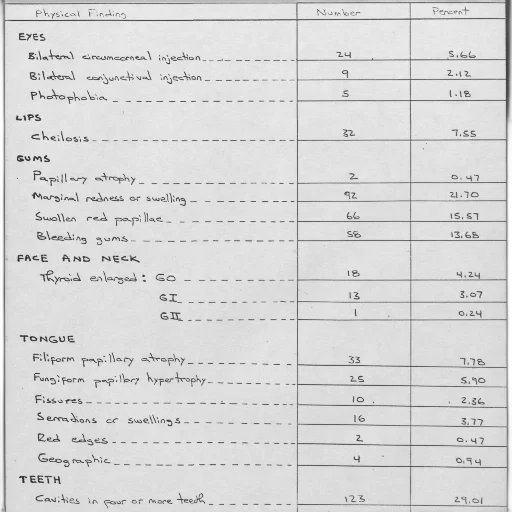 Physical Finding Number Percent
EYES
Bilateral circumcorneal injection 24 5.66
Bilateral conjunctival injection 9 2.12
Photophobia 5 1.18
LIPS
Cheilosis 32 7.55
GUMS
Papillary atrophy 2 0.47
Marginal redness or swelling 92 21.70
Swollen red papillae 66 15.57
Bleeding gums 58 13.68
FACE AND NECK
Thyroid enlarged: GO 18 4.24
GI 13 3.07
GII 1 0.24
TONGUE
Filiform papillary atrophy 33 7.78
Fungiform papillary hypertrophy 25 5.90
Fissures 10 2.36
Serrations or swellings 16 3.77
Red edges 2 0.47
Geographic 4 0.94
TEETH
Cavities in four or more teeth 123 29.01